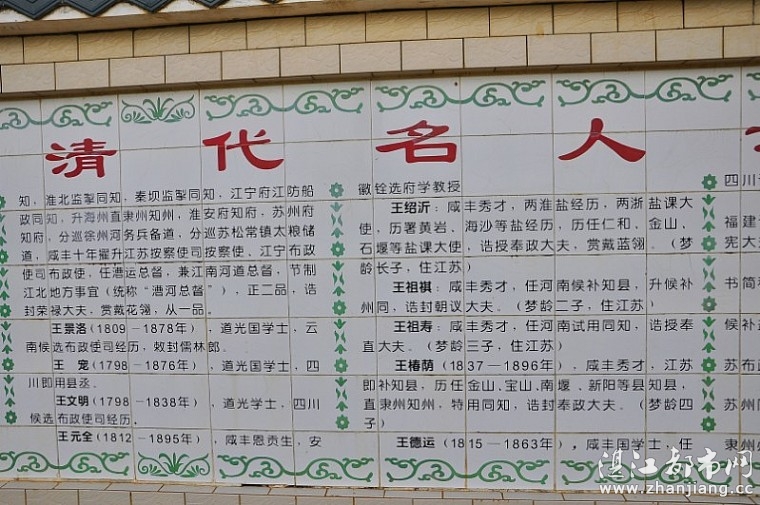 清代名人
知，淮北监掣同知，秦坝监掣同知，江宁府江防船
政同知，升海州直隶州知州，淮安府知府，苏州府
知府，分巡徐州河务兵备道，分巡苏松常镇太粮储
道，咸丰十年擢升江苏按察使司按察使、江宁布政
使司布政使，任漕运总督，兼江南河道总督，节制
江北地方事宜（统称“漕河总督”），正二品，诰
封荣禄大夫，赏戴花翎，从一品。
王景洛(1809－1878年)，道光国学士，云
南候选布政使司经历，敕封儒林郎。
王 宠(1798－1876年)，道光国学士，四
川即用县丞。
王文明(1798－1838年)，道光学士，四川
候选布政使司经历。
王元全(1812－1895年)，咸丰恩贡生，安
徽铨选府学教授
王绍沂：咸丰秀才，两淮盐经历，两浙盐课大
使，历署黄岩、海沙等盐经历，历任仁和、金山、
石堰等盐课大使，诰授奉政大夫，赏戴蓝翎。（梦
龄长子，住江苏）
王祖祺：咸丰秀才，任河南候补知县，升候补
州同，诰封朝议大夫。（梦龄二子，住江苏）
王祖寿：咸丰秀才，任河南试用同知，诰授奉
直大夫。（梦龄三子，住江苏）
王椿荫(1837－1896年)，咸丰秀才，江苏
即补知县，历任金山、宝山、南堰、新阳等县知县，
直隶州知州，特用同知，诰封奉政大夫。（梦龄四
子）
王德运(1815－1863年)，咸丰国学士，任
四川
福建
宪大
书简
候补
苏布
隶州
湛江都市网
www.zhanjiang.cc